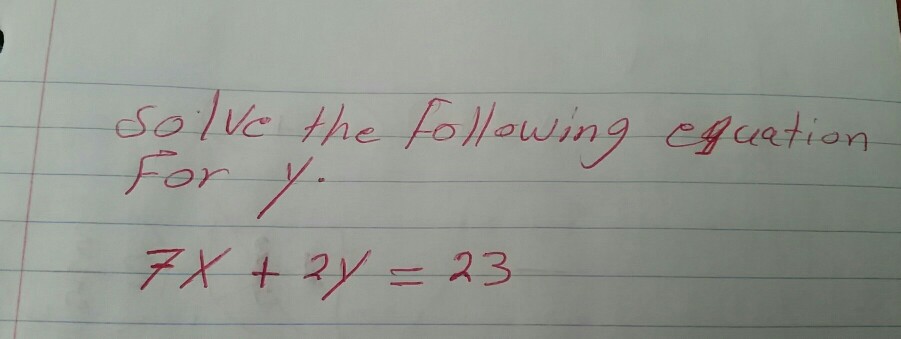 Solve the following equation
For y.
7X + 2y = 23